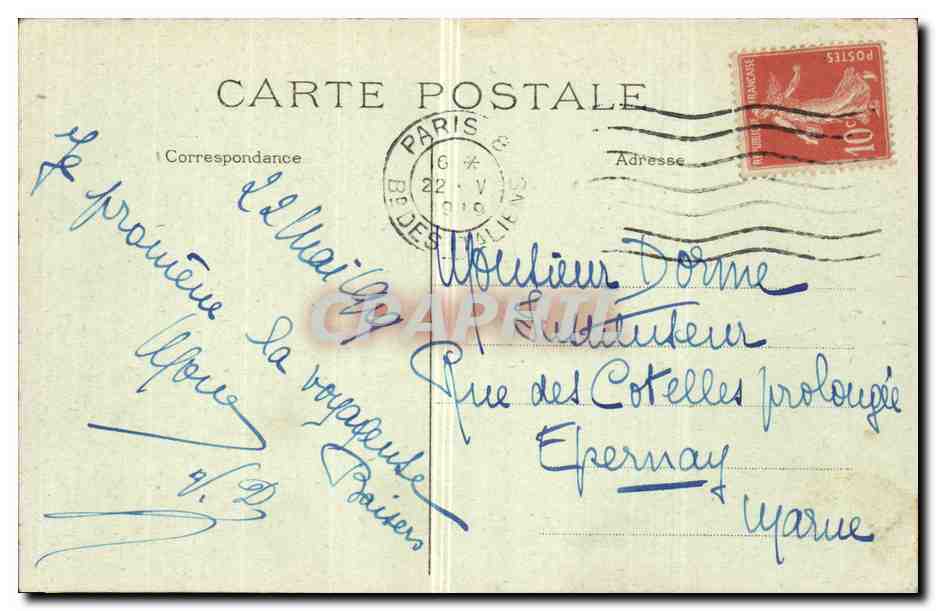 CARTE POSTALE
Correspondance
Adresse
RÉPUBLIQUE FRANÇAISE
POSTES
10c
PARIS 8
6 *
22 · V
1919
Bd DES ITALIENS
22 Mai 1919
Je promène
la voyageuse
Baisers
V. D
Monsieur Dorme
Instituteur
Rue des Cotelles prolongée
Epernay
Marne
CPAPHIL